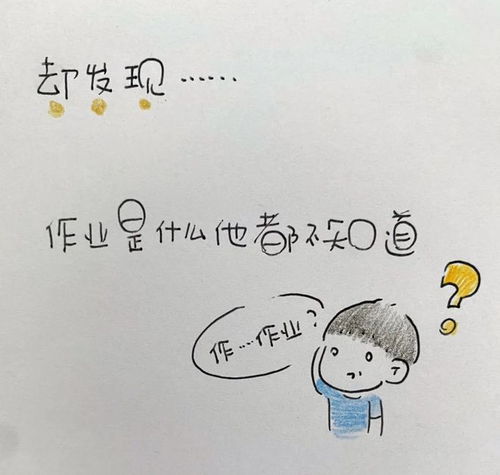 却发现……
作业是什么他都不知道
作…作业?
?